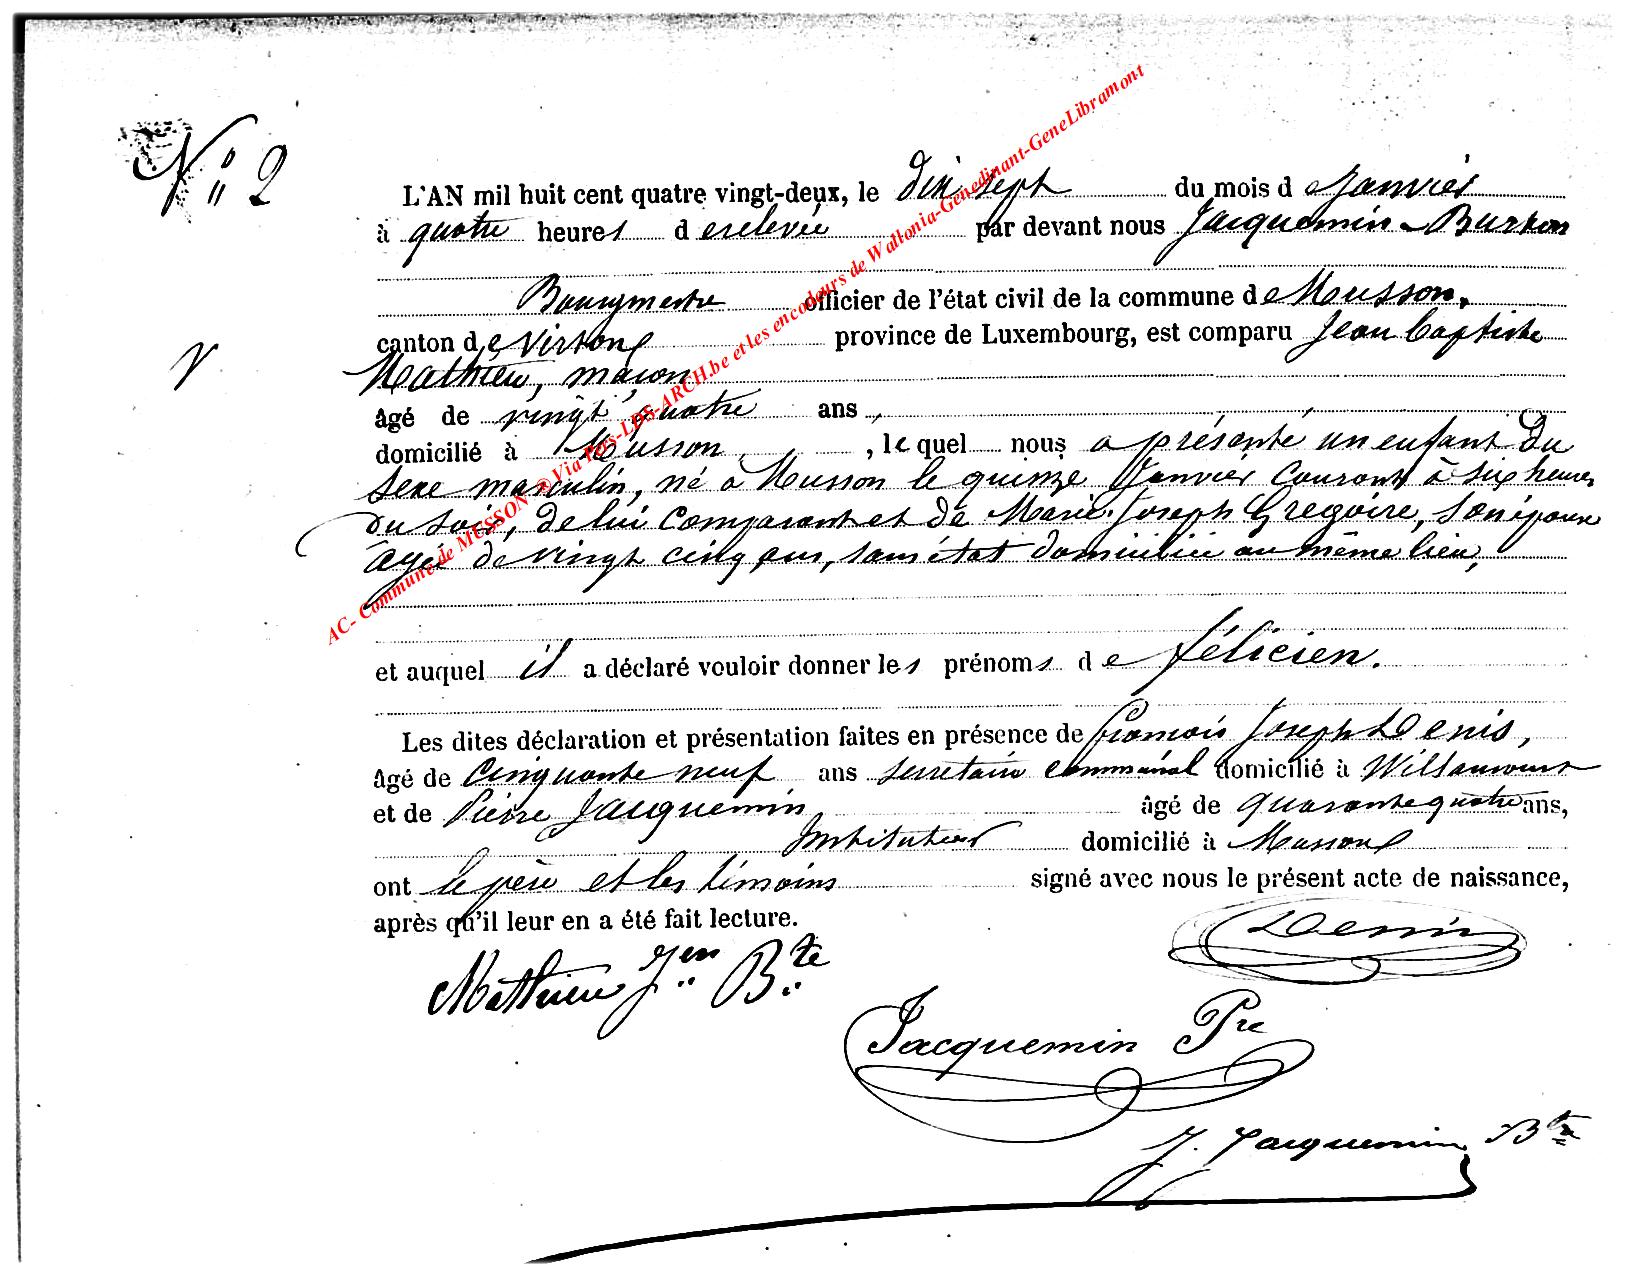 N° 2
L'AN mil huit cent quatre vingt-deux, le dix sept du mois de Janvier
à quatre heures de relevée par devant nous Jacquemin-Burton
Bourgmestre officier de l'état civil de la commune de Musson,
canton de Virton province de Luxembourg, est comparu Jean Baptiste
Mathieu, maçon
âgé de vingt quatre ans,
domicilié à Musson, lequel nous a présenté un enfant du
sexe masculin, né à Musson le quinze Janvier courant à six heures
du soir, de lui comparant et de Marie Joseph Grégoire, son épouse
âgée de vingt cinq ans, sans état domiciliée au même lieu,
et auquel il a déclaré vouloir donner les prénoms de Félicien.
Les dites déclaration et présentation faites en présence de François Joseph Denis,
âgé de cinquante neuf ans secrétaire communal domicilié à Willancourt
et de Pierre Jacquemin âgé de quarante quatre ans,
Instituteur domicilié à Musson
ont le père et les témoins signé avec nous le présent acte de naissance,
après qu'il leur en a été fait lecture.
Denis
Mathieu Jen Bte
Jacquemin Pre
J. Jacquemin
AC- Commune de MUSSON @ Via Fos-LDS-ARCH.be et les encodeurs de Wallonia-Genedinant-GeneLibramont